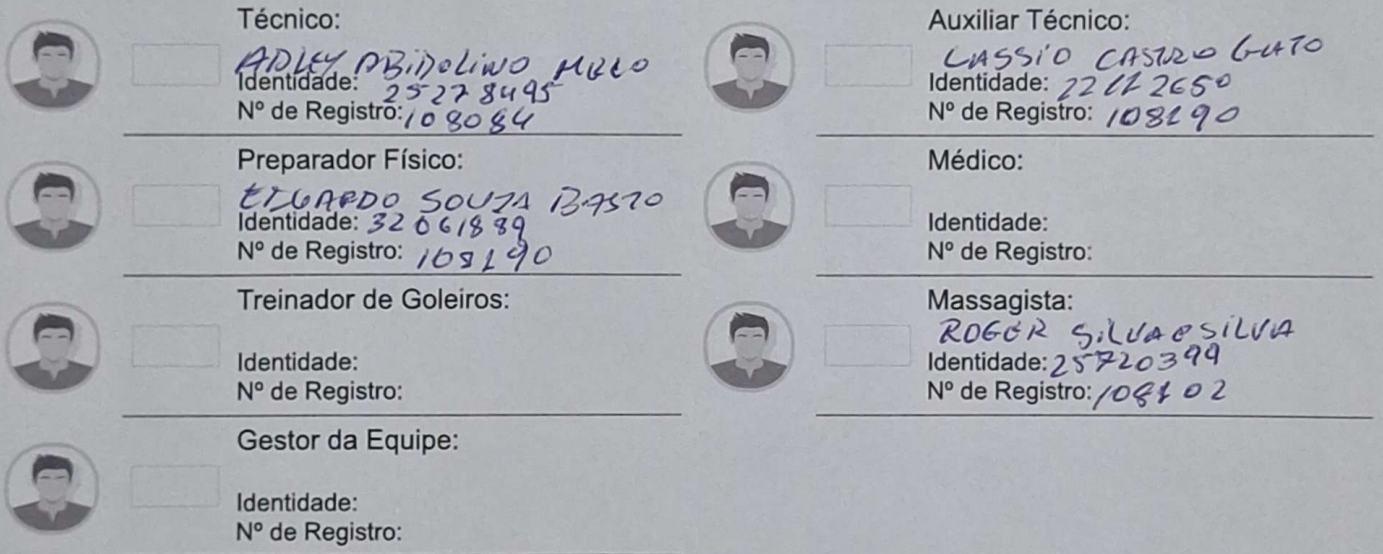 Técnico:
ADLEY ABIDOLINO MELO
Identidade: 25278495
Nº de Registro: 108084
Preparador Físico:
EDUARDO SOUZA BASTO
Identidade: 32061889
Nº de Registro: 108190
Treinador de Goleiros:
Identidade:
Nº de Registro:
Gestor da Equipe:
Identidade:
Nº de Registro:
Auxiliar Técnico:
CASSIO CASTRO GUTO
Identidade: 22112650
Nº de Registro: 108190
Médico:
Identidade:
Nº de Registro:
Massagista:
ROGER SILVA e SILVA
Identidade: 25720399
Nº de Registro: 108102